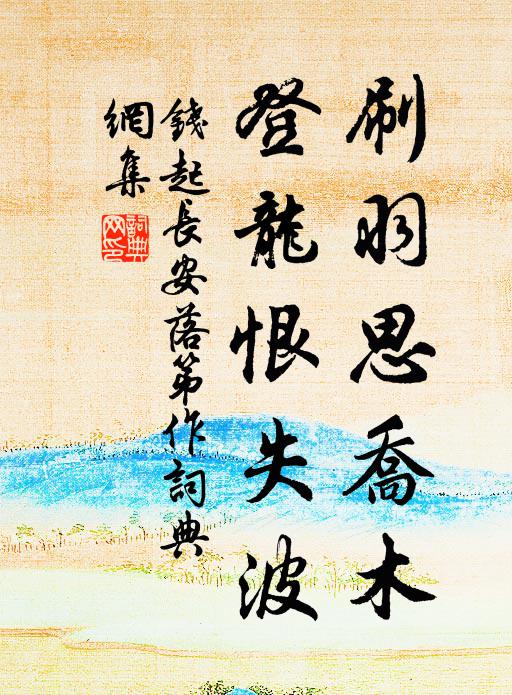 刷羽思喬木
登龍恨失波
錢起長安落第作詞典
網集
詞典
网印